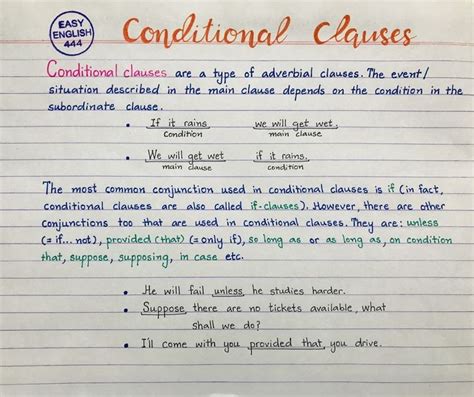 EASY
ENGLISH
444
Conditional Clauses
Conditional clauses are a type of adverbial clauses. The event/
situation described in the main clause depends on the condition in the
subordinate clause.
• If it rains, we will get wet.
condition main clause
• We will get wet if it rains.
main clause condition
The most common conjunction used in conditional clauses is if (in fact,
conditional clauses are also called if-clauses). However, there are other
conjunctions too that are used in conditional clauses. They are: unless
(= if... not), provided (that) (= only if), so long as or as long as, on condition
that, suppose, supposing, in case etc.
• He will fail unless he studies harder.
• Suppose there are no tickets available, what
shall we do?
• I'll come with you provided that you drive.